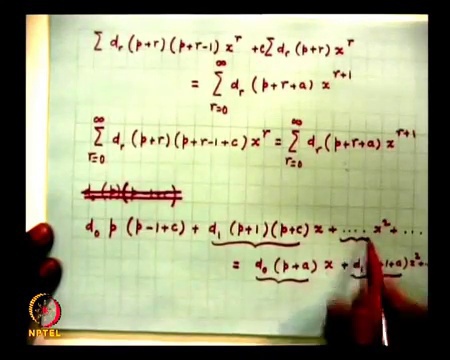 Σ d_r (p+r)(p+r-1) x^r + c Σ d_r (p+r) x^r
= Σ_{r=0}^{∞} d_r (p+r+a) x^{r+1}
Σ_{r=0}^{∞} d_r (p+r)(p+r-1+c) x^r = Σ_{r=0}^{∞} d_r (p+r+a) x^{r+1}
d_0 p (p-1+c) + d_1 (p+1)(p+c) x + .... x^2 + ...
= d_0 (p+a) x + d_1 +1+a) x^2 + ..
NPTEL